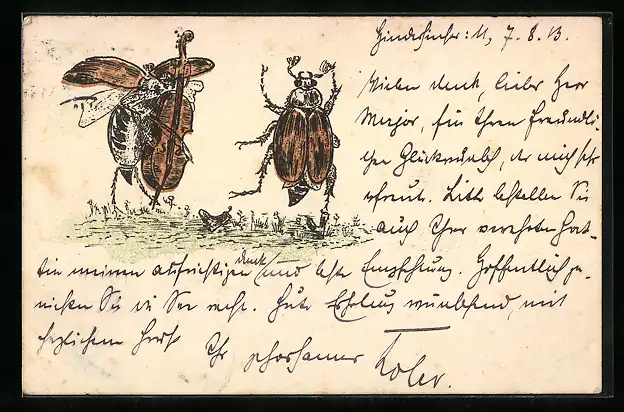 7. 8. 13.
Vielen Dank, lieber Herr
Major, für Ihren freundli-
chen Glückwunsch, der mich sehr
erfreut. Bitte bestellen Sie
auch Ihrer verehrten Gat-
tin meinen aufrichtigen Dank und beste Empfehlung. Hoffentlich ge-
nießen Sie die See recht. Gute Erholung wünschend, mit
herzlichem Gruß Ihr gehorsamer